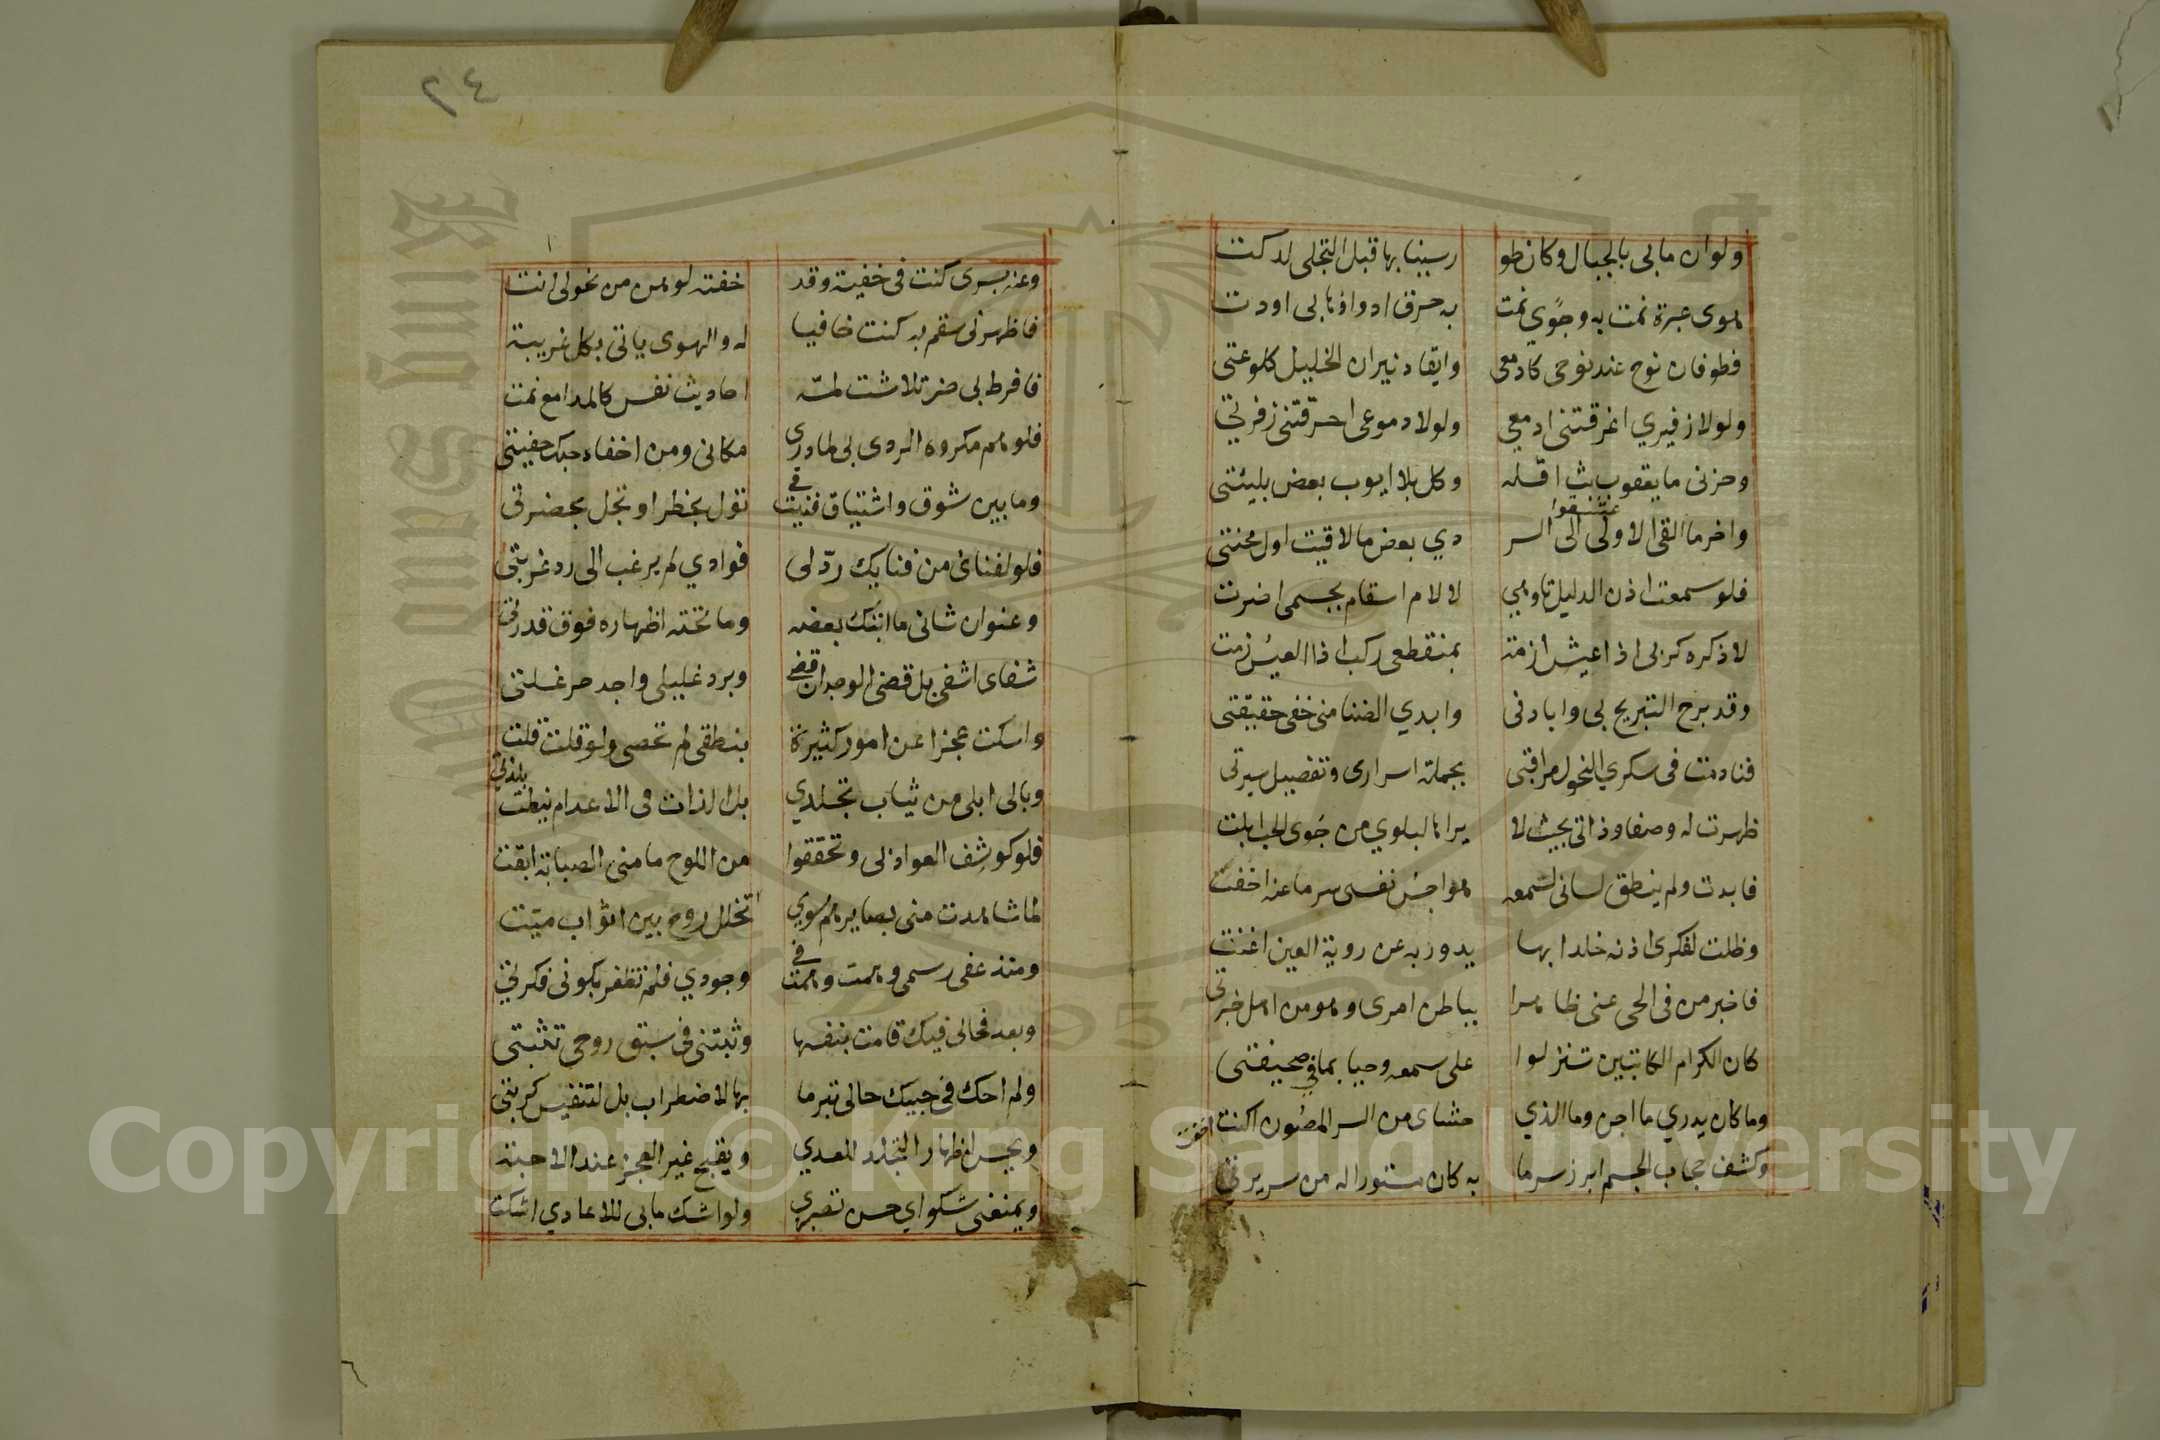 ولوان مابي بالجبال وكان طو رسينا بها قبل التجلي لدكت
هوى عبرة نمت به وجوي نمت به حرق ادواؤها بي اودت
فطوفان نوح عند نوحي كادمعي وايقاد نيران الخليل كلوعتي
ولولا زفيري اغرقتني ادمعي ولولا دموعي احرقتني زفرتي
وحزني ما يعقوب بث اقله وكل بلا ايوب بعض بليتي
واخر ما القى الاولى عشقوا الى الر دي بعض ما لاقيت اول محنتي
فلو سمعت اذن الدليل تاوهي لالام اسقام بجسمي اضرت
لاذكره كربي اذا عيش ازمة بمنقطعي ركب اذا العيس زمت
وقد برح التبريح بي وابادني وابدي الضنا مني خفي حقيقتي
فنادمت في سكري النحول مراقبي بجملة اسراري وتفصيل سيرتي
ظهرت له وصفا وذاتي بحيث لا يراها لبلوي من جوى الحب ابلت
فابدت ولم ينطق لساني لسمعه هواجس نفسي سر ما عنه اخفت
وظلت لفكرى اذنه خلدا بها يدور به عن روية العين اغنت
فاخبر من في الحي عني ظاهرا بباطن امرى وهو من اهل خبرتي
كان الكرام الكاتبين تنزلوا على سمعه وحيا بما في صحيفتي
وما كان يدري ما اجن وما الذي حشاى من السر المصون اكنت
اخفت
وكشف حجاب الجسم ابرز سر ما به كان مستورا له من سريرتي
٢٤
وعنه بسرى كنت في خفية وقد خفته لوهن من نحولي انت
فاظهرني سقم به كنت خافيا له والهوى ياتي بكل غريبة
فافرط بي ضر تلاشت لمسه احاديث نفس كالمدامع نمت
فلو هم مكروه الردى بي لما درى مكاني ومن اخفاء حبك خفيتي
وما بين شوق واشتياق فنيت في تول بخطر او تجل بحضرتي
فلو لفناى من فنايك رد لي فوادي لم يرغب الى رد غربتي
وعنوان شاني ما ابثك بعضه وما تحته اظهاره فوق قدرتي
شفاى اشفى بل قضى الوجد ان قضى وبرد غليلي واجد حر غلتي
واسكت عجزا عن امور كثيرة بنطقي لم تحصى ولو قلت قلت
وبالي ابلى من ثياب تجلدي بل الذات في الاعدام نيطت بلذتي
فلو كوشف العواد بي وتحققوا من اللوح ما مني الصبابة ابقت
لما شاهدت مني بصايرهم سوي تخلل روح بين اثواب ميت
ومنذ عفى رسمي وهمت وهمت في وجودي فلم تظفر بكوني فكرتي
وبعد فحالي فيك قامت بنفسها وثبتني في سبق روحي تثبتي
ولم احك في حبيك حالي تبرما بها لاضطراب بل لتنفيس كربتي
ويحسن اظهار التجلد للعدي ويقبح غير العجز عند الاحبة
ويمنعني شكواي حسن تصبري ولو اشك ما بي للاعادي اشكت
Copyright © King Saud University